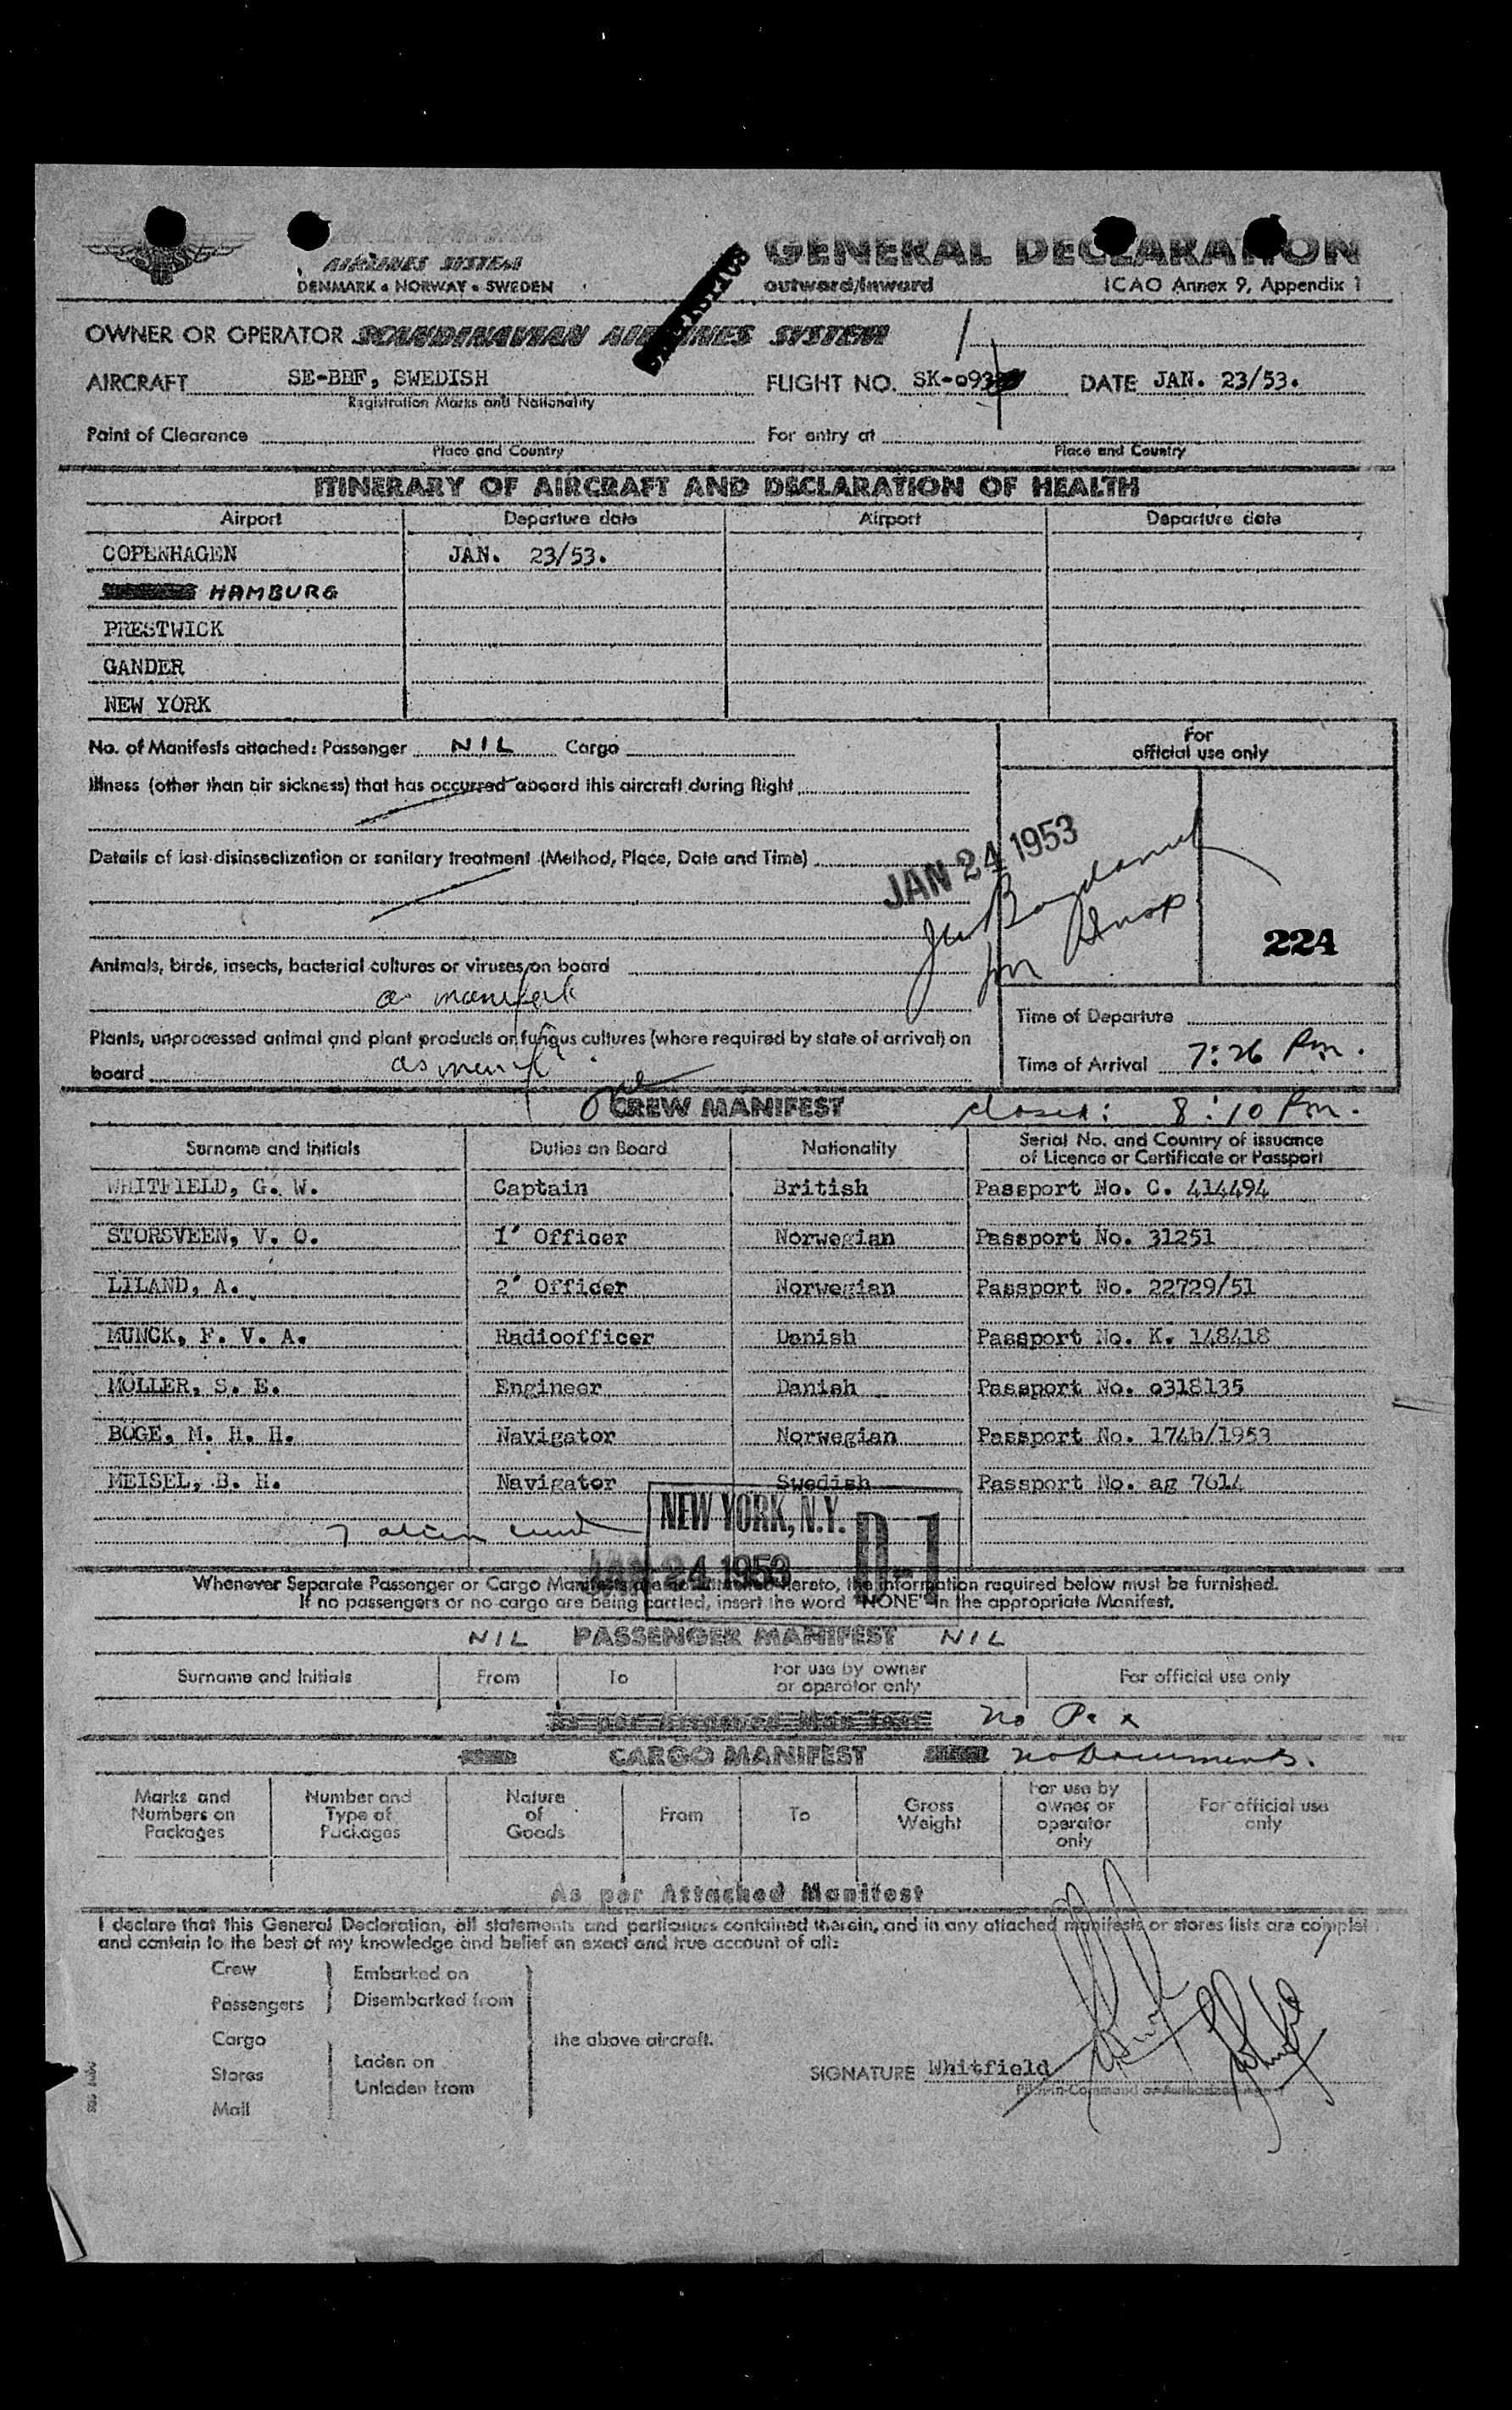 AIRLINES SYSTEM
DENMARK • NORWAY • SWEDEN
GENERAL DECLARATION
outward/inward ICAO Annex 9, Appendix 1
OWNER OR OPERATOR SCANDINAVIAN AIRLINES SYSTEM
AIRCRAFT SE-BDF, SWEDISH FLIGHT NO. DATE JAN. 23/53.
Registration Marks and Nationality
Point of Clearance For entry at
Place and Country Place and Country
ITINERARY OF AIRCRAFT AND DECLARATION OF HEALTH
Airport Departure date Airport Departure date
COPENHAGEN JAN. 23/53.
HAMBURG
PRESTWICK
GANDER
NEW YORK
No. of Manifests attached: Passenger NIL Cargo
For
official use only
Illness (other than air sickness) that has occurred aboard this aircraft during flight
Details of last disinsectization or sanitary treatment (Method, Place, Date and Time)
JAN 24 1953
224
Animals, birds, insects, bacterial cultures or viruses on board
Time of Departure
Plants, unprocessed animal and plant products or fungus cultures (where required by state of arrival) on
board
Time of Arrival 7:26 Pm.
CREW MANIFEST closed: 8:10 Pm.
Surname and Initials Duties on Board Nationality Serial No. and Country of issuance
of Licence or Certificate or Passport
WHITFIELD, G. W. Captain British Passport No. C. 414494
STORSVEEN, V. O. 1' Officer Norwegian Passport No. 31251
LILAND, A. 2' Officer Norwegian Passport No. 22729/51
MUNCK, F. V. A. Radioofficer Danish Passport No. K. 148418
MÖLLER, S. E. Engineer Danish Passport No. o318135
BÖGE, M. H. H. Navigator Norwegian Passport No. 174b/1953
MEISEL, B. H. Navigator Swedish Passport No. ag 7614
7 alien
NEW YORK, N.Y.
JAN 24 1953 D-1
Whenever Separate Passenger or Cargo Manifests are not attached hereto, the information required below must be furnished.
If no passengers or no cargo are being carried, insert the word "NONE" in the appropriate Manifest.
NIL PASSENGER MANIFEST NIL
Surname and Initials From To For use by owner
or operator only For official use only
As per Attached Manifest no Pax
CARGO MANIFEST no Documents.
Marks and
Numbers on
Packages
Number and
Type of
Packages
Nature
of
Goods
From To
Gross
Weight
For use by
owner or
operator
only
For official use
only
As per Attached Manifest
I declare that this General Declaration, all statements and particulars contained therein, and in any attached manifests or stores lists are complet
and contain to the best of my knowledge and belief an exact and true account of all:
Crew
Passengers
Embarked on
Disembarked from
Cargo
Stores
Mail
Laden on
Unladen from
the above aircraft.
SIGNATURE Whitfield
Pilot-in-Command or Authorized Agent